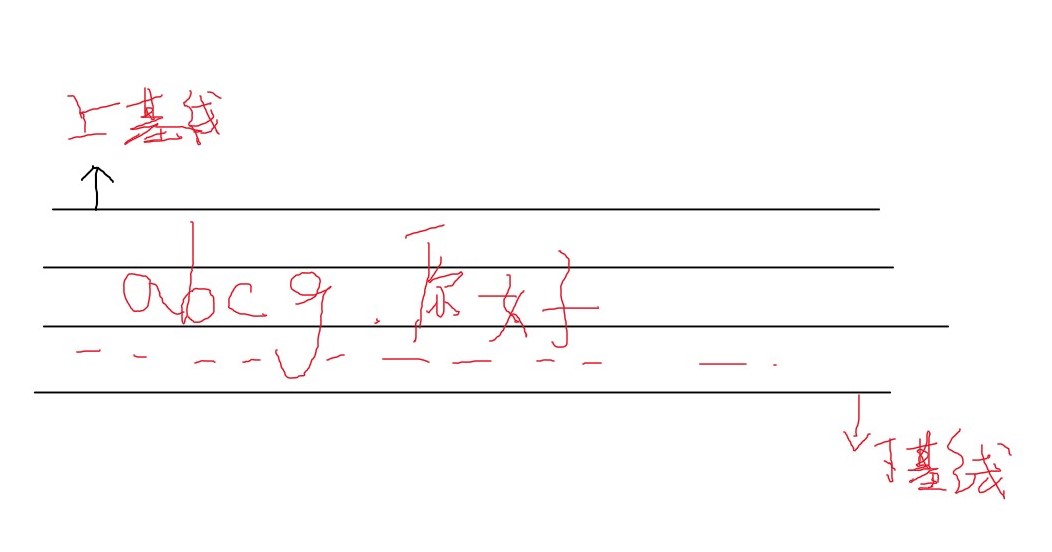 上基线
abcg.你好
下基线